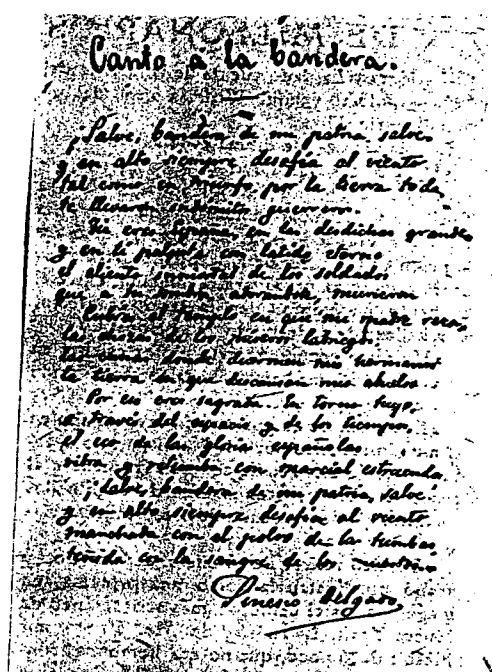 Canto á la bandera.
¡Salve, bandera de mi patria, salve.
y en alto siempre desafía al viento
tal como en triunfo por la tierra toda
te llevaron indómitos guerreros.
Tú eres España, en las desdichas grande,
y en ti palpita con latido eterno
el aliento inmortal de los soldados
que á tu sombra, adorándote, murieron
Cubres el templo en que mi madre reza,
las chozas de los míseros labriegos,
las cunas donde duermen mis hermanos
la tierra en que descansan mis abuelos.
Por eso eres sagrada. En torno tuyo,
a través del espacio y de los tiempos,
el eco de las glorias españolas
vibra y retumba con marcial estruendo
¡Salve, bandera de mi patria, salve!
y en alto siempre desafía al viento
manchada con el polvo de las tumbas
teñida con la sangre de los muertos
Sinesio Delgado